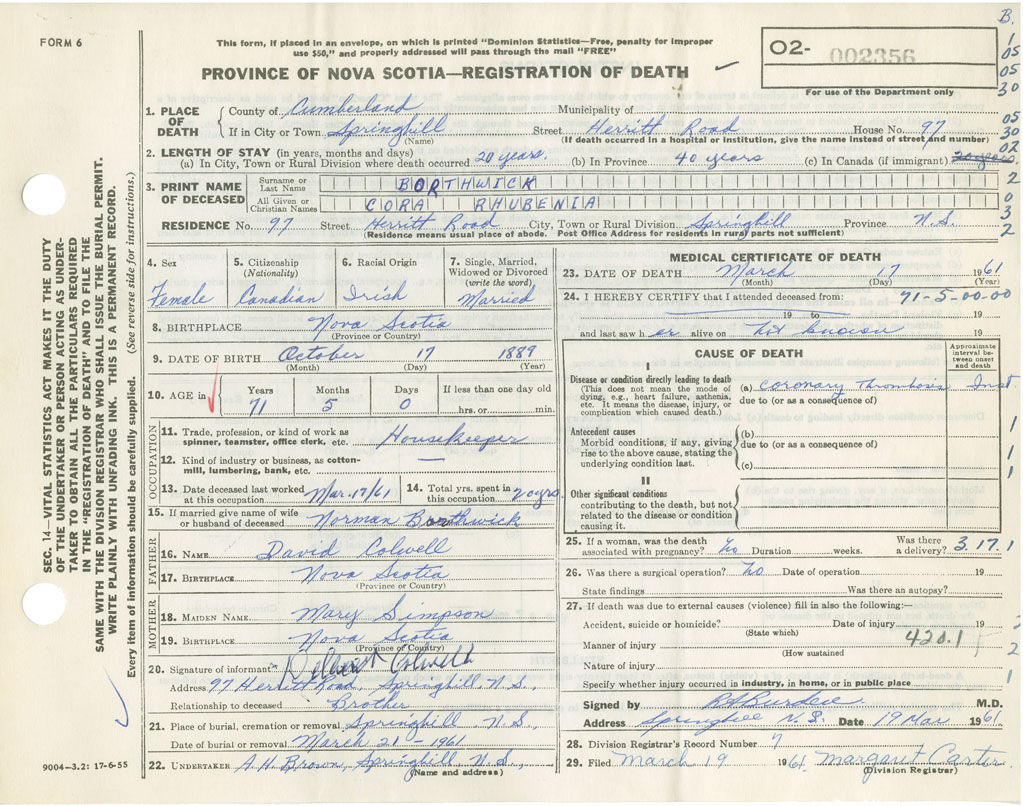 FORM 6
This form, if placed in an envelope, on which is printed "Dominion Statistics—Free, penalty for improper
use $50," and properly addressed will pass through the mail "FREE"
PROVINCE OF NOVA SCOTIA—REGISTRATION OF DEATH
O2- 002356
For use of the Department only
B.
1
05
05
30
05
30
02
2
0
3
2
1. PLACE OF DEATH
County of Cumberland Municipality of
If in City or Town Springhill Street Herritt Road House No. 97
(Name) (If death occurred in a hospital or institution, give the name instead of street and number)
2. LENGTH OF STAY (in years, months and days)
(a) In City, Town or Rural Division where death occurred 20 years. (b) In Province 40 years (c) In Canada (if immigrant) 20 years
3. PRINT NAME OF DECEASED
Surname or Last Name BORTHWICK
All Given or Christian Names CORA RHUBENIA
RESIDENCE No. 97 Street Herritt Road City, Town or Rural Division Springhill Province N.S.
(Residence means usual place of abode. Post Office Address for residents in rural parts not sufficient)
4. Sex
Female
5. Citizenship
(Nationality)
Canadian
6. Racial Origin
Irish
7. Single, Married,
Widowed or Divorced
(write the word)
Married
8. BIRTHPLACE Nova Scotia
(Province or Country)
9. DATE OF BIRTH October 17 1889
(Month) (Day) (Year)
10. AGE in
Years Months Days If less than one day old
71 5 0 hrs. or min.
OCCUPATION
11. Trade, profession, or kind of work as
spinner, teamster, office clerk, etc. Housekeeper
12. Kind of industry or business, as cotton-
mill, lumbering, bank, etc. —
13. Date deceased last worked
at this occupation Mar. 17/61
14. Total yrs. spent in
this occupation 20 yrs
15. If married give name of wife
or husband of deceased Norman Borthwick
FATHER
16. NAME David Colwell
17. BIRTHPLACE Nova Scotia
(Province or Country)
MOTHER
18. MAIDEN NAME Mary Simpson
19. BIRTHPLACE Nova Scotia
(Province or Country)
20. Signature of informant Colwell
Address 97 Herritt Road, Springhill, N.S.,
Relationship to deceased Brother
21. Place of burial, cremation or removal Springhill N.S.,
Date of burial or removal March 21 - 1961
22. UNDERTAKER A.H. Brown, Springhill N.S.,
(Name and address)
MEDICAL CERTIFICATE OF DEATH
23. DATE OF DEATH March 17 1961
(Month) (Day) (Year)
24. I HEREBY CERTIFY that I attended deceased from: 71-5-00-00
19 to 19
and last saw h er alive on not known 19
CAUSE OF DEATH
Approximate interval between onset and death
I
Disease or condition directly leading to death
(This does not mean the mode of
dying, e.g., heart failure, asthenia,
etc. It means the disease, injury, or
complication which caused death.)
(a) Coronary Thrombosis Inst
due to (or as a consequence of)
Antecedent causes
Morbid conditions, if any, giving
rise to the above cause, stating the
underlying condition last.
(b)
due to (or as a consequence of)
(c)
II
Other significant conditions
contributing to the death, but not
related to the disease or condition
causing it.
1
1
1
1
25. If a woman, was the death
associated with pregnancy? No Duration weeks. Was there
a delivery? 3.17.1
26. Was there a surgical operation? No Date of operation 19
State findings Was there an autopsy?
27. If death was due to external causes (violence) fill in also the following:—
Accident, suicide or homicide? Date of injury 19
(State which)
420.1
Manner of injury 2
(How sustained)
Nature of injury
Specify whether injury occurred in industry, in home, or in public place 1
Signed by M.D.
Address Springhill N.S. Date 19 Mar 1961
28. Division Registrar's Record Number 7
29. Filed March 19 1961 Margaret Carter
(Division Registrar)
SEC. 14—VITAL STATISTICS ACT MAKES IT THE DUTY
OF THE UNDERTAKER OR PERSON ACTING AS UNDER-
TAKER TO OBTAIN ALL THE PARTICULARS REQUIRED
IN THE "REGISTRATION OF DEATH" AND TO FILE THE
SAME WITH THE DIVISION REGISTRAR WHO SHALL ISSUE THE BURIAL PERMIT.
WRITE PLAINLY WITH UNFADING INK. THIS IS A PERMANENT RECORD.
Every item of information should be carefully supplied. (See reverse side for instructions.)
9004—3.2: 17-6-55